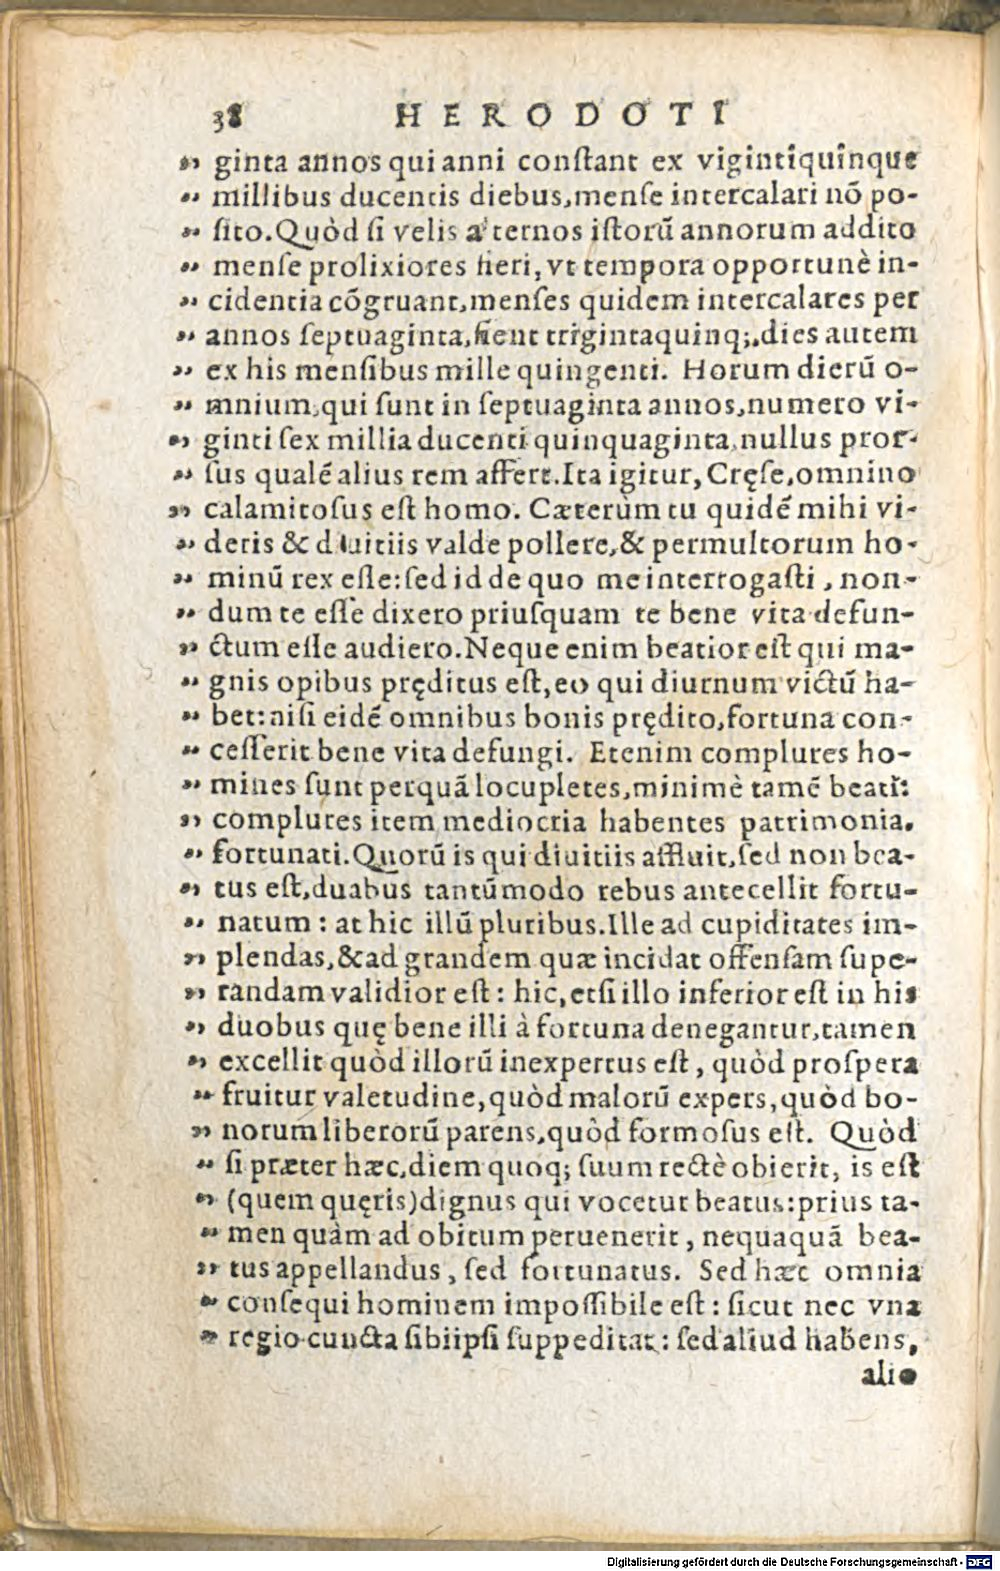 38 HERODOTI
„ ginta annos qui anni conſtant ex vigintiquinque
„ millibus ducentis diebus,menſe intercalari nõ po-
„ ſito.Quòd ſi velis a ternos iſtorũ annorum addito
„ menſe prolixiores fieri, vt tempora opportunè in-
„ cidentia cõgruant,menſes quidem intercalares per
„ annos ſeptuaginta,fient trigintaquinq;,dies autem
„ ex his menſibus mille quingenti. Horum dierũ o-
„ mnium,qui ſunt in ſeptuaginta annos,numero vi-
„ ginti ſex millia ducenti quinquaginta,nullus pror-
„ ſus qualẽ alius rem affert.Ita igitur, Cręſe,omnino
„ calamitoſus eſt homo. Cæterùm tu quidẽ mihi vi-
„ deris & diuitiis valde pollere,& permultorum ho-
„ minũ rex eſſe:ſed id de quo me interrogaſti , non-
„ dum te eſſe dixero priuſquam te bene vita defun-
„ ctum eſſe audiero.Neque enim beatior eſt qui ma-
„ gnis opibus pręditus eſt,eo qui diurnum victũ ha-
„ bet:niſi eidẽ omnibus bonis prędito,fortuna con-
„ ceſſerit bene vita defungi. Etenim complures ho-
„ mines ſunt perquã locupletes,minimè tamẽ beati:
„ complures item mediocria habentes patrimonia,
„ fortunati.Quorũ is qui diuitiis affluit,ſed non bea-
„ tus eſt,duabus tantũmodo rebus antecellit fortu-
„ natum : at hic illũ pluribus.Ille ad cupiditates im-
„ plendas,&ad grandem quæ incidat offenſam ſupe-
„ randam validior eſt : hic,etſi illo inferior eſt in his
„ duobus quę bene illi à fortuna denegantur,tamen
„ excellit quòd illorũ inexpertus eſt , quòd proſpera
„ fruitur valetudine,quòd malorũ expers,quòd bo-
„ norum liberorũ parens,quòd formoſus eſt. Quòd
„ ſi præter hæc,diem quoq; ſuum rectè obierit, is eſt
„ (quem quęris)dignus qui vocetur beatus:prius ta-
„ men quàm ad obitum peruenerit , nequaquã bea-
„ tus appellandus , ſed fortunatus. Sed hæc omnia
„ conſequi hominem impoſſibile eſt : ſicut nec vna
„ regio cuncta ſibiipſi ſuppeditat : ſed aliud habens,
alio
Digitalisierung gefördert durch die Deutsche Forschungsgemeinschaft - DFG